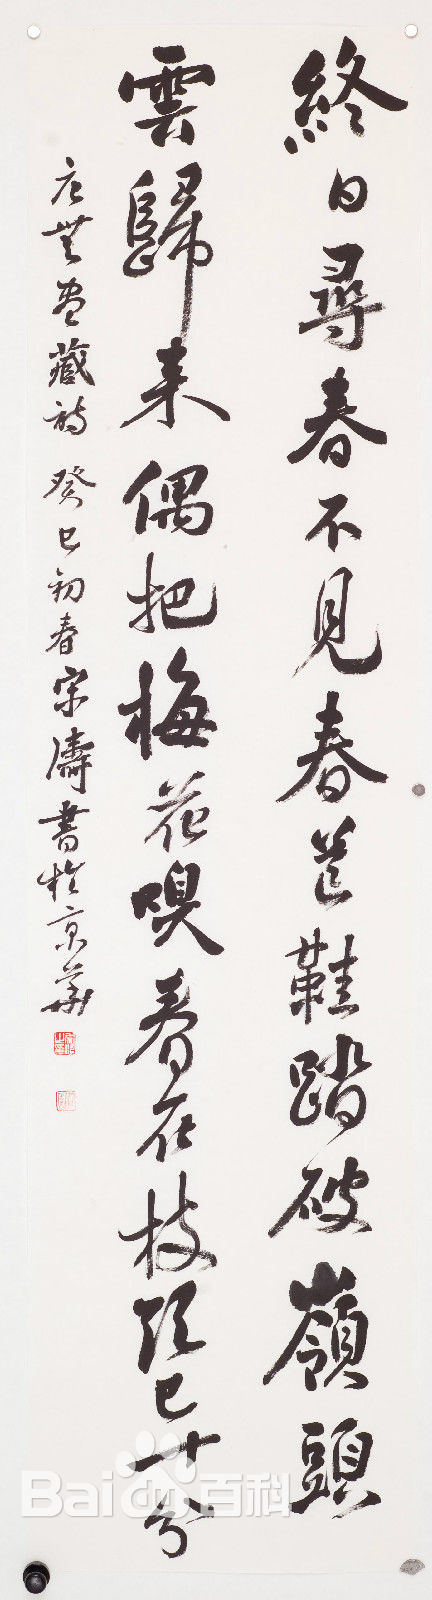 終日尋春不見春芒鞋踏破嶺頭
雲歸来偶把梅花嗅春在枝頭已十分
唐無盡藏詩 癸巳初春宗濤書於京華
Bai百科